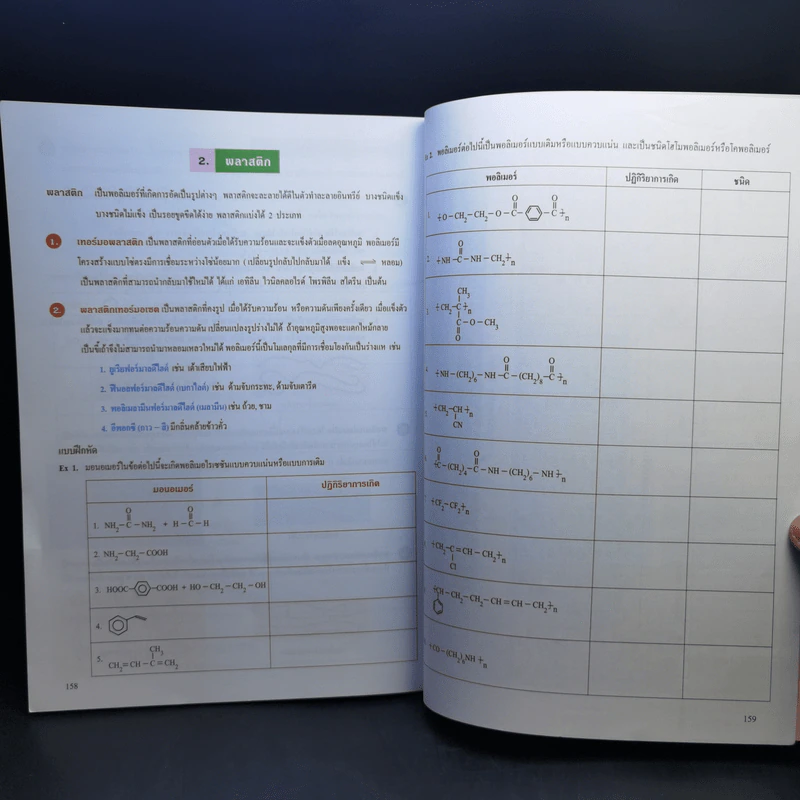 2. พลาสติก
พลาสติก เป็นพอลิเมอร์ที่เกิดการอัดเป็นรูปต่างๆ พลาสติกจะละลายได้ดีในตัวทำละลายอินทรีย์ บางชนิดแข็ง
บางชนิดไม่แข็ง เป็นรอยขูดขีดได้ง่าย พลาสติกแบ่งได้ 2 ประเภท
1. เทอร์มอพลาสติก เป็นพลาสติกที่อ่อนตัวเมื่อได้รับความร้อนและจะแข็งตัวเมื่อลดอุณหภูมิ พอลิเมอร์มี
โครงสร้างแบบโซ่ตรงมีการเชื่อมระหว่างโซ่น้อยมาก (เปลี่ยนรูปกลับไปกลับมาได้ แข็ง หลอม)
เป็นพลาสติกที่สามารถนำกลับมาใช้ใหม่ได้ ได้แก่ เอทิลีน ไวนิลคลอไรด์ โพรพิลีน สไตรีน เป็นต้น
2. พลาสติกเทอร์มอเซต เป็นพลาสติกที่คงรูป เมื่อได้รับความร้อน หรือความดันเพียงครั้งเดียว เมื่อแข็งตัว
แล้วจะแข็งมากทนต่อความร้อนความดัน เปลี่ยนแปลงรูปร่างไม่ได้ ถ้าอุณหภูมิสูงพอจะแตกไหม้กลาย
เป็นขี้เถ้าจึงไม่สามารถนำมาหลอมเหลวใหม่ได้ พอลิเมอร์นี้เป็นโมเลกุลที่มีการเชื่อมโยงกันเป็นร่างแห เช่น
1. ยูเรียฟอร์มาลดีไฮด์ เช่น เต้าเสียบไฟฟ้า
2. ฟีนอลฟอร์มาลดีไฮด์ (เบกาไลต์) เช่น ด้ามจับกระทะ, ด้ามจับเตารีด
3. พอลิเมลามีนฟอร์มาลดีไฮด์ (เมลามีน) เช่น ถ้วย, ชาม
4. อีพอกซี (กาว - สี) มีกลิ่นคล้ายข้าวคั่ว
แบบฝึกหัด
Ex 1. มอนอเมอร์ในข้อต่อไปนี้จะเกิดพอลิเมอไรเซชันแบบควบแน่นหรือแบบการเติม
มอนอเมอร์ ปฏิกิริยาการเกิด
O O
1. NH2-C-NH2 + H-C-H
2. NH2-CH2-COOH
3. HOOC- -COOH + HO-CH2-CH2-OH
4.
CH3
5. CH2=CH-C=CH2
158
2. พอลิเมอร์ต่อไปนี้เป็นพอลิเมอร์แบบเติมหรือแบบควบแน่น และเป็นชนิดโฮโมพอลิเมอร์หรือโคพอลิเมอร์
พอลิเมอร์ ปฏิกิริยาการเกิด ชนิด
O O
+O-CH2-CH2-O-C- -C+n
O
+NH-C-NH-CH2+n
CH3
+CH2-C+n
C-O-CH3
O
O O
+NH-(CH2)6-NH-C-(CH2)8-C+n
+CH2-CH+n
CN
O O
+C-(CH2)4-C-NH-(CH2)6-NH+n
+CF2-CF2+n
+CH2-C=CH-CH2+n
Cl
+CH-CH2-CH2-CH=CH-CH2+n
+CO-(CH2)6NH+n
159